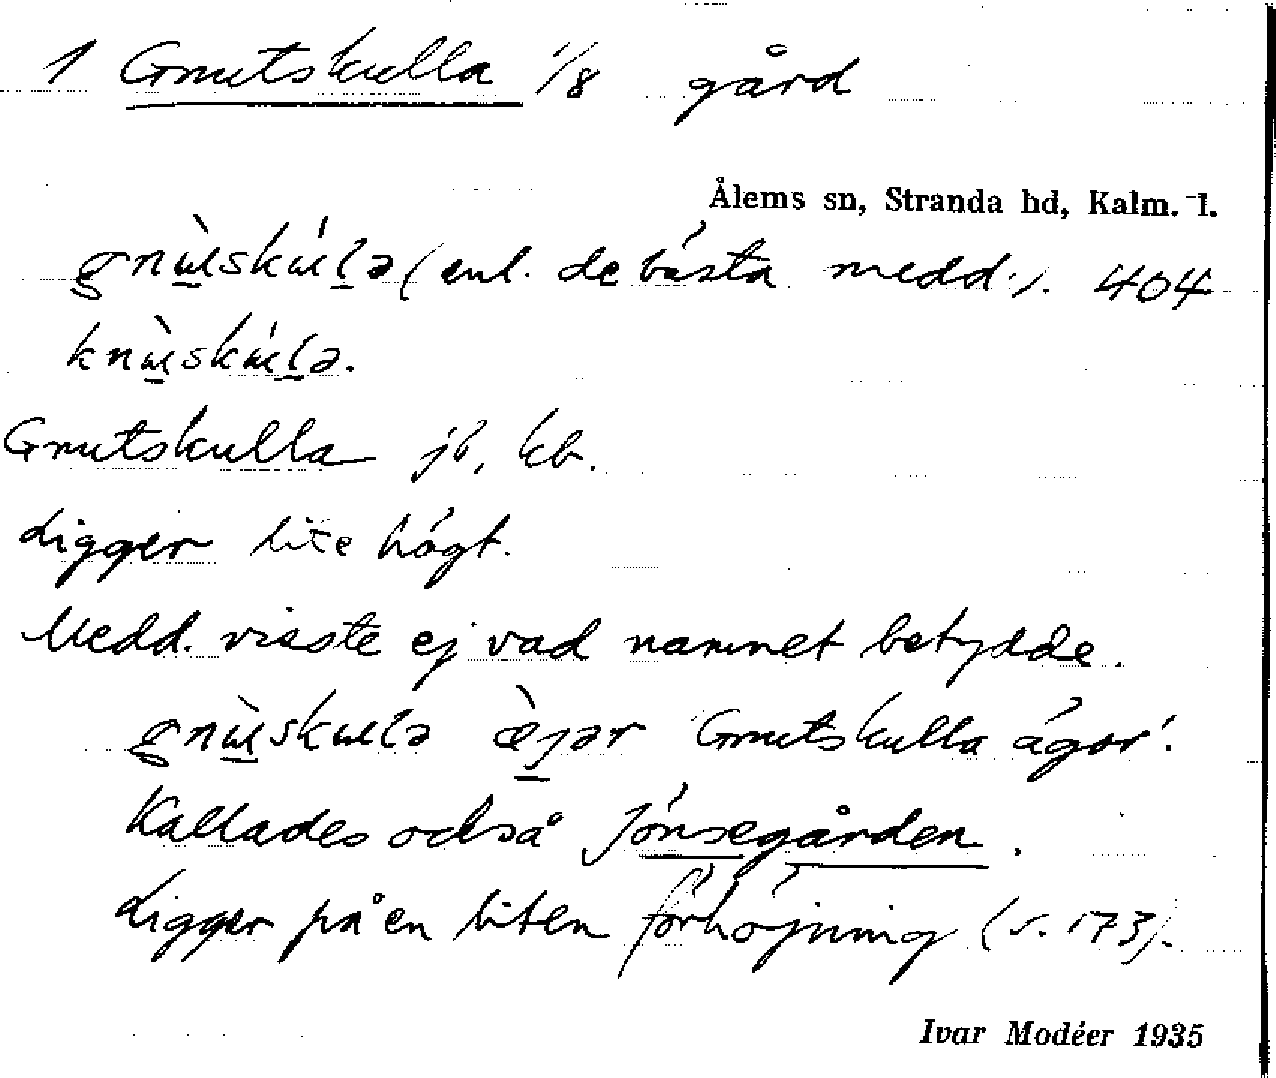 1 Gnutskulla 1/8 gård
Ålems sn, Stranda hd, Kalm. l.
gnɯ̀skɯ́lə (enl. de bästa medd.). 404
knɯ̀skɯ́lə.
Gnutskulla jb, kb.
Ligger lite högt.
Medd. visste ej vad namnet betydde.
gnɯ̀skɯlə æ̀jər Gnutskulla ägor'.
Kallades också Jönsegården.
Ligger på en liten förhöjning (s. 173).
Ivar Modéer 1935